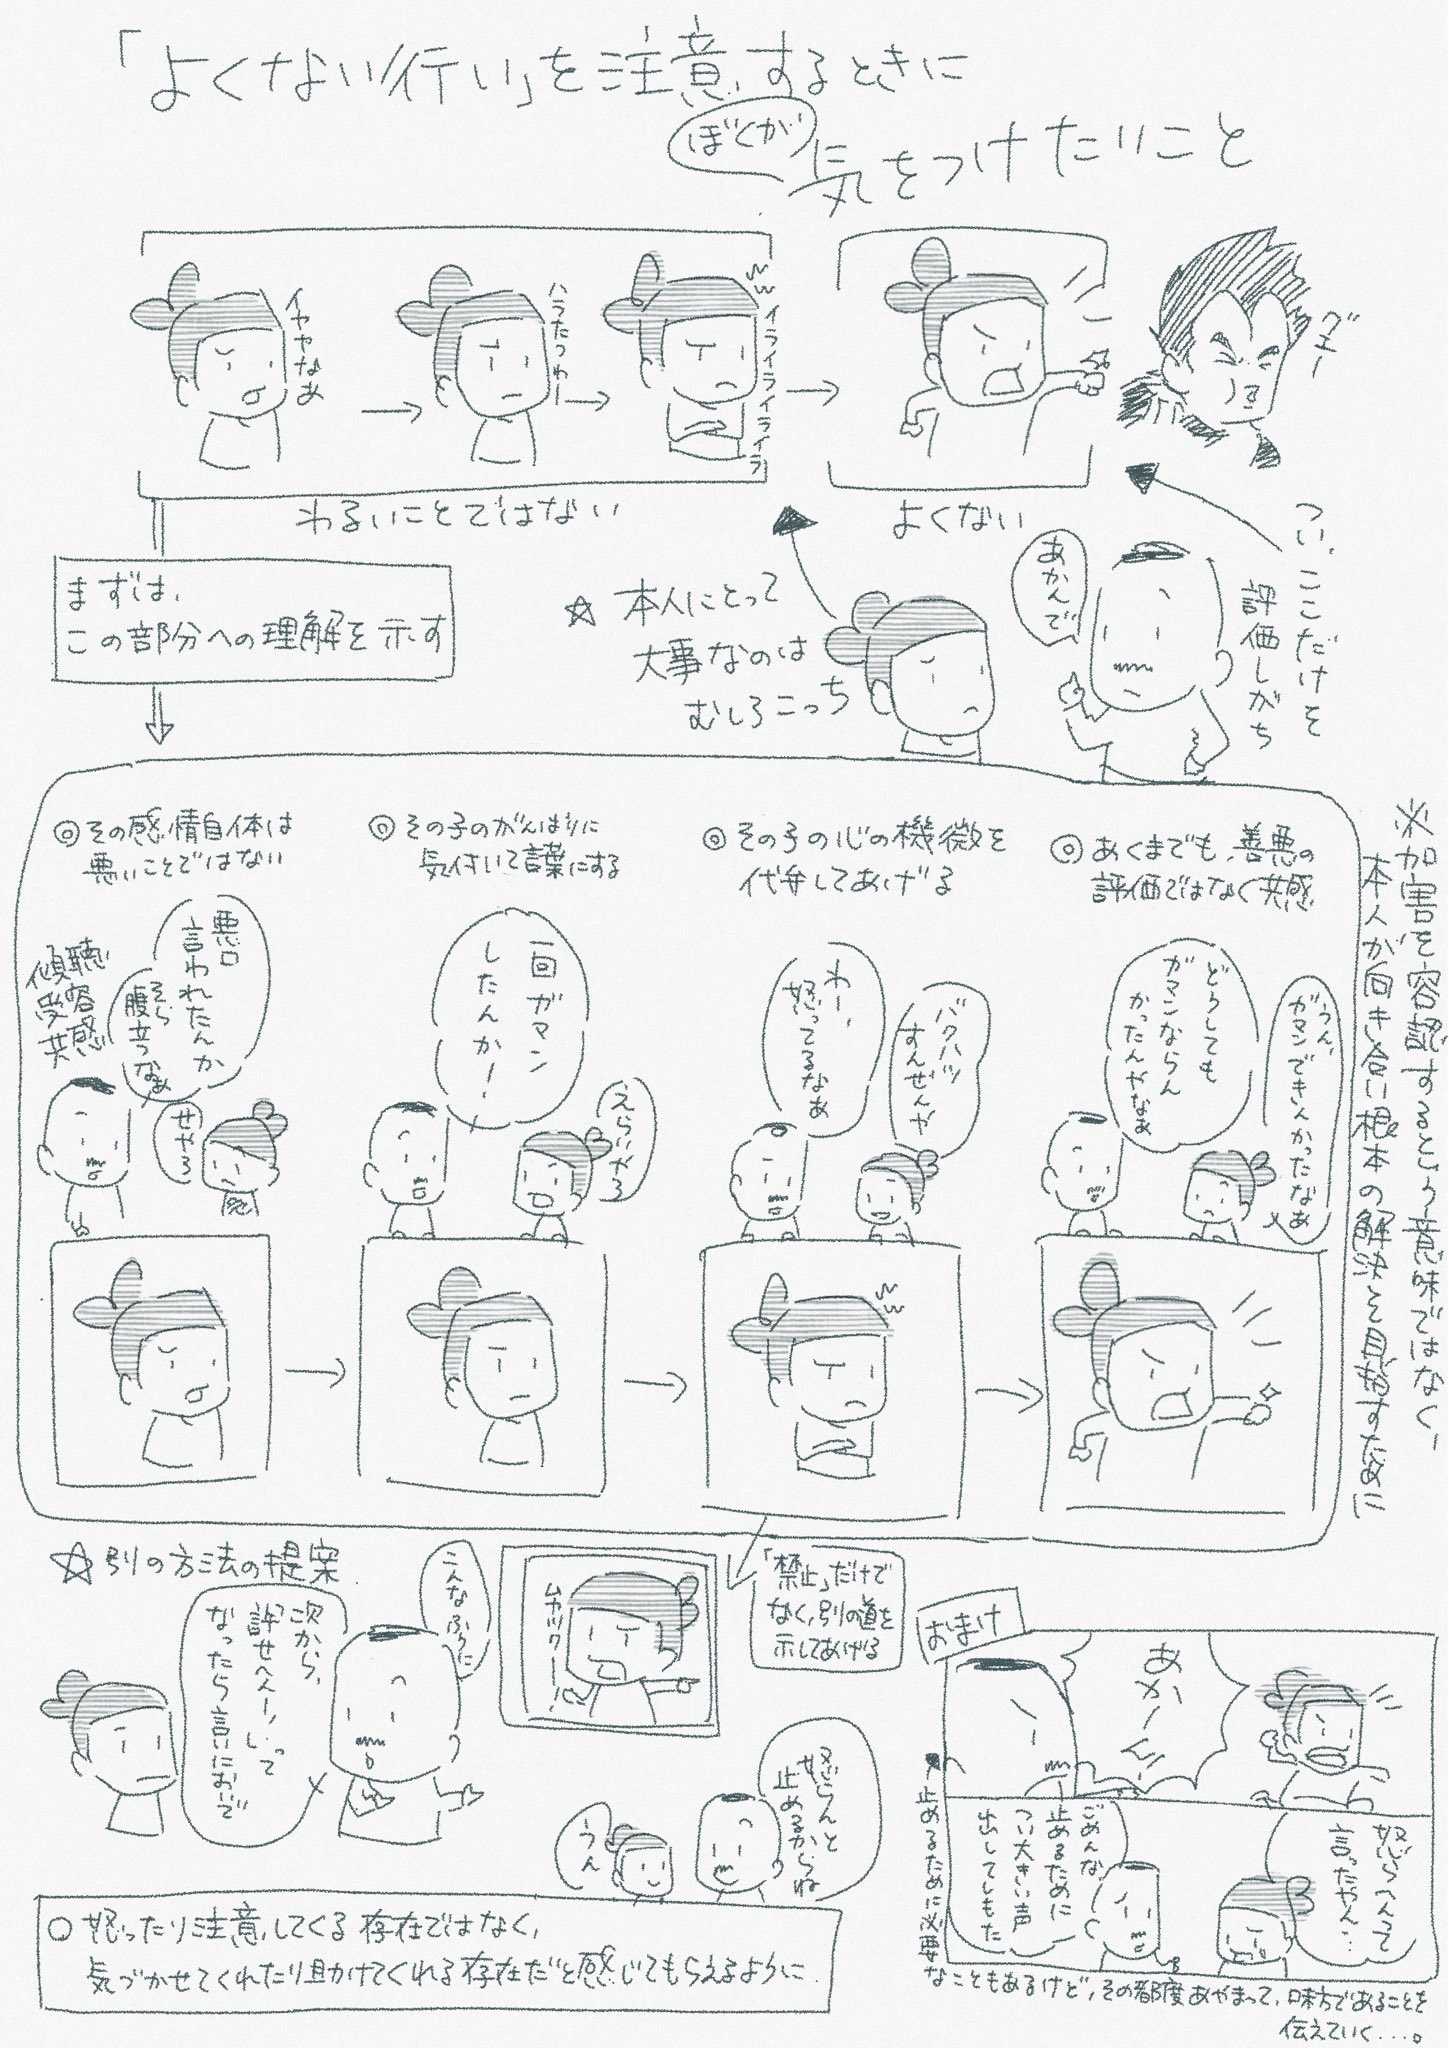 「よくない行い」を注意するときに
ぼくが
気をつけたいこと
イヤやなあ
ハラたつわー
イライライライラ
グエー
わるいことではない
よくない
つい、ここだけを
評価しがち
あかんで
まずは、
この部分への理解を示す
☆ 本人にとって
大事なのは
むしろこっち
※加害を容認するという意味ではなく、
本人が向き合い根本の解決を目指すために
◎その感情自体は
悪いことではない
悪口
言われたんか
そら
腹立つなぁ
傾聴
受容
共感
せやろ
◎その子のがんばりに
気付いて言葉にする
一回ガマン
したんか!
えらいやろ
◎その子の心の機微を
代弁してあげる
わー、
怒ってるなあ
バクハツ
すんぜんや
◎あくまでも、善悪の
評価ではなく共感
どうしても
ガマンならん
かったんやなあ
うん、
ガマンできんかったなあ
☆別の方法の提案
次から、
「許せへんー!」って
なったら言いにおいで
こんなふうに
ムカツクー!
「禁止」だけで
なく、別の道を
示してあげる
怒らんと
止めるからね
うん
○ 怒ったり注意してくる存在ではなく、
気づかせてくれたり助けてくれる存在だと感じてもらえるように
おまけ
あかーん!
怒らへんって
言ったやん…
ごめんな
止めるために
つい大きい声
出してしもた
止めるために必要
なこともあるけど、その都度あやまって、味方であることを
伝えていく…。